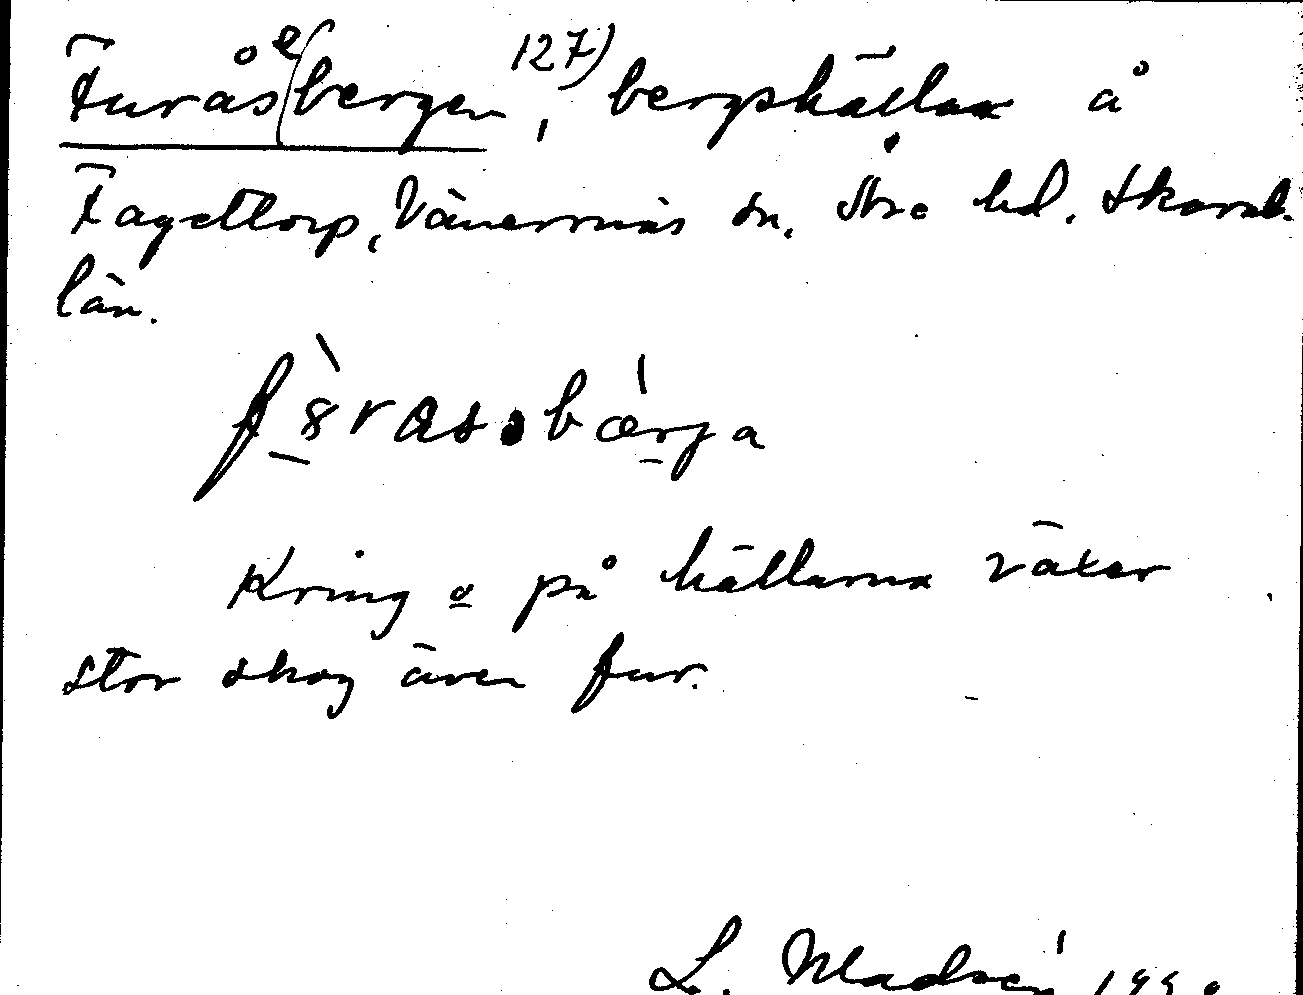 Furåsebergen, 127) bergshällar å
Fagettorp, Vänersnäs sn. Åse hd. Skarab.
län.
Kring o på hällarna växer
stor skog även fur.
L. Madsén